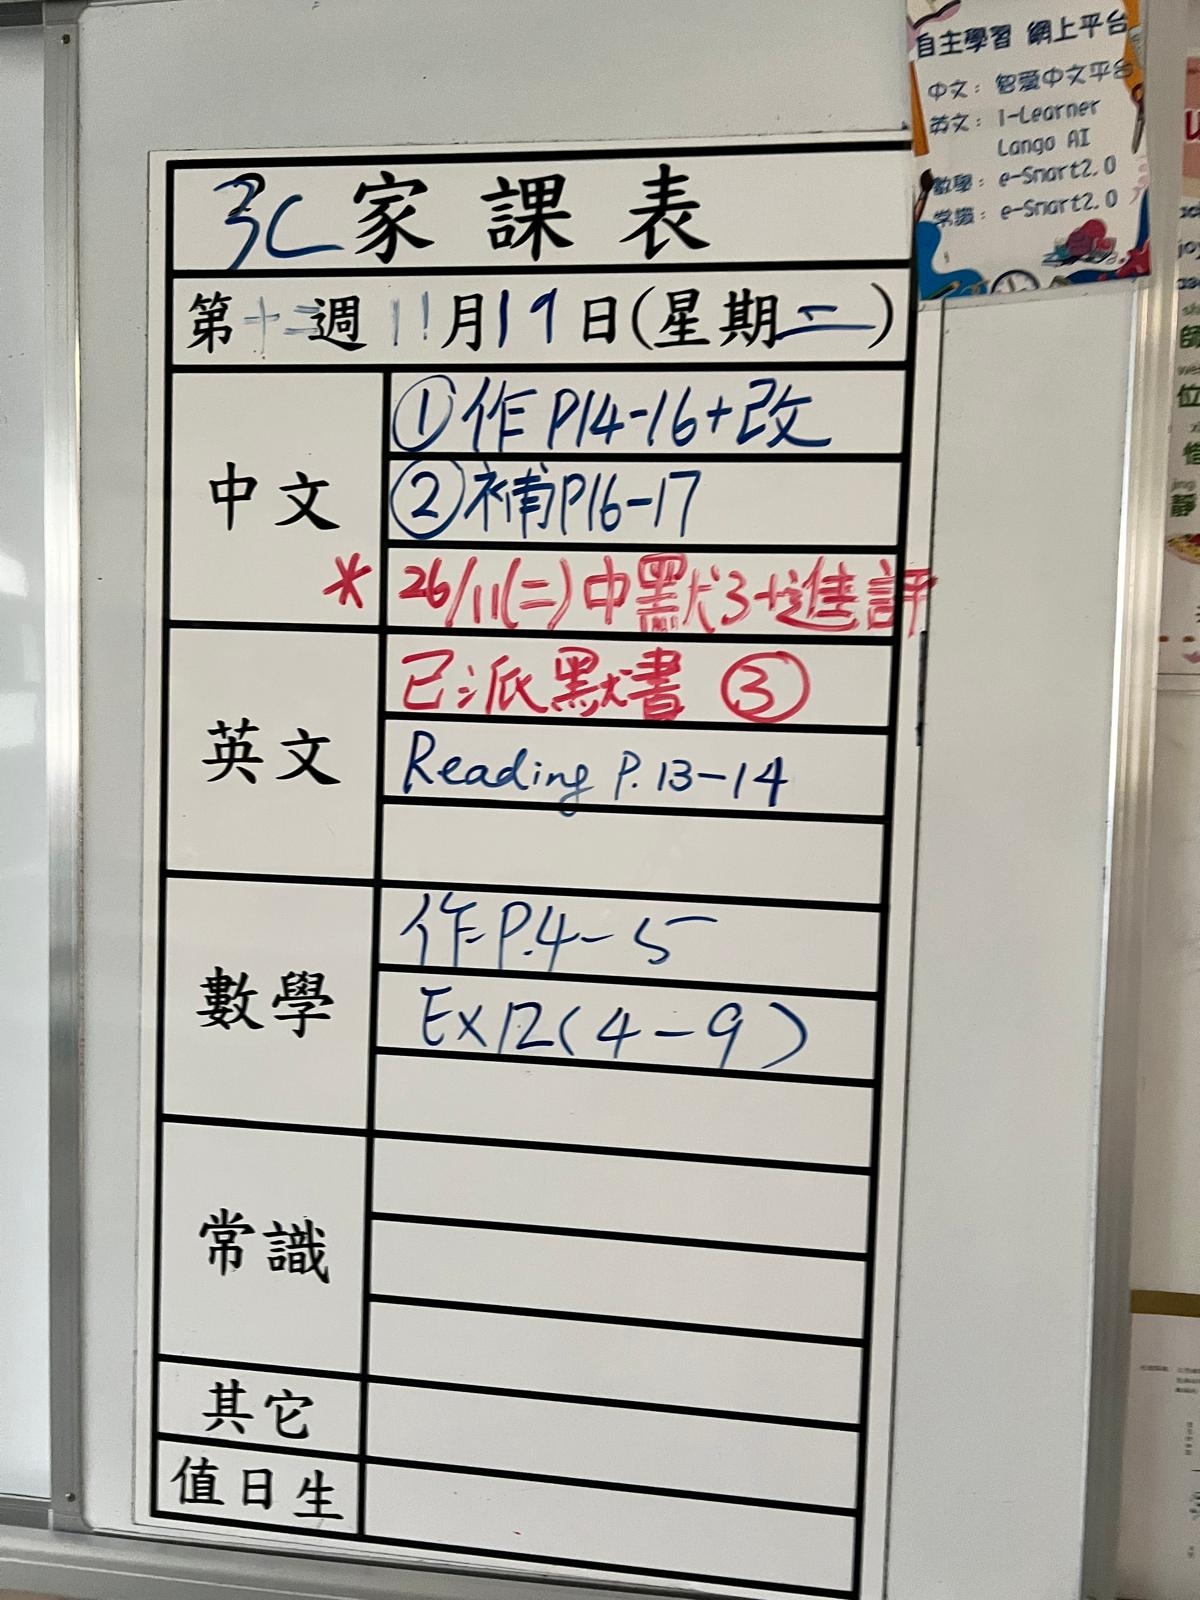 自主學習 網上平台
中文：智愛中文平台
英文：i-Learner
Lango AI
數學：e-Smart2.0
常識：e-Smart2.0
3C家課表
第十二週 11月19日(星期二)
中文
①作P14-16+改
②補P16-17
* 26/11(二)中默3+進評
英文
已派默書 ③
Reading P.13-14
數學
作P.4-5
Ex12(4-9)
常識
其它
值日生
師
位
惜
靜